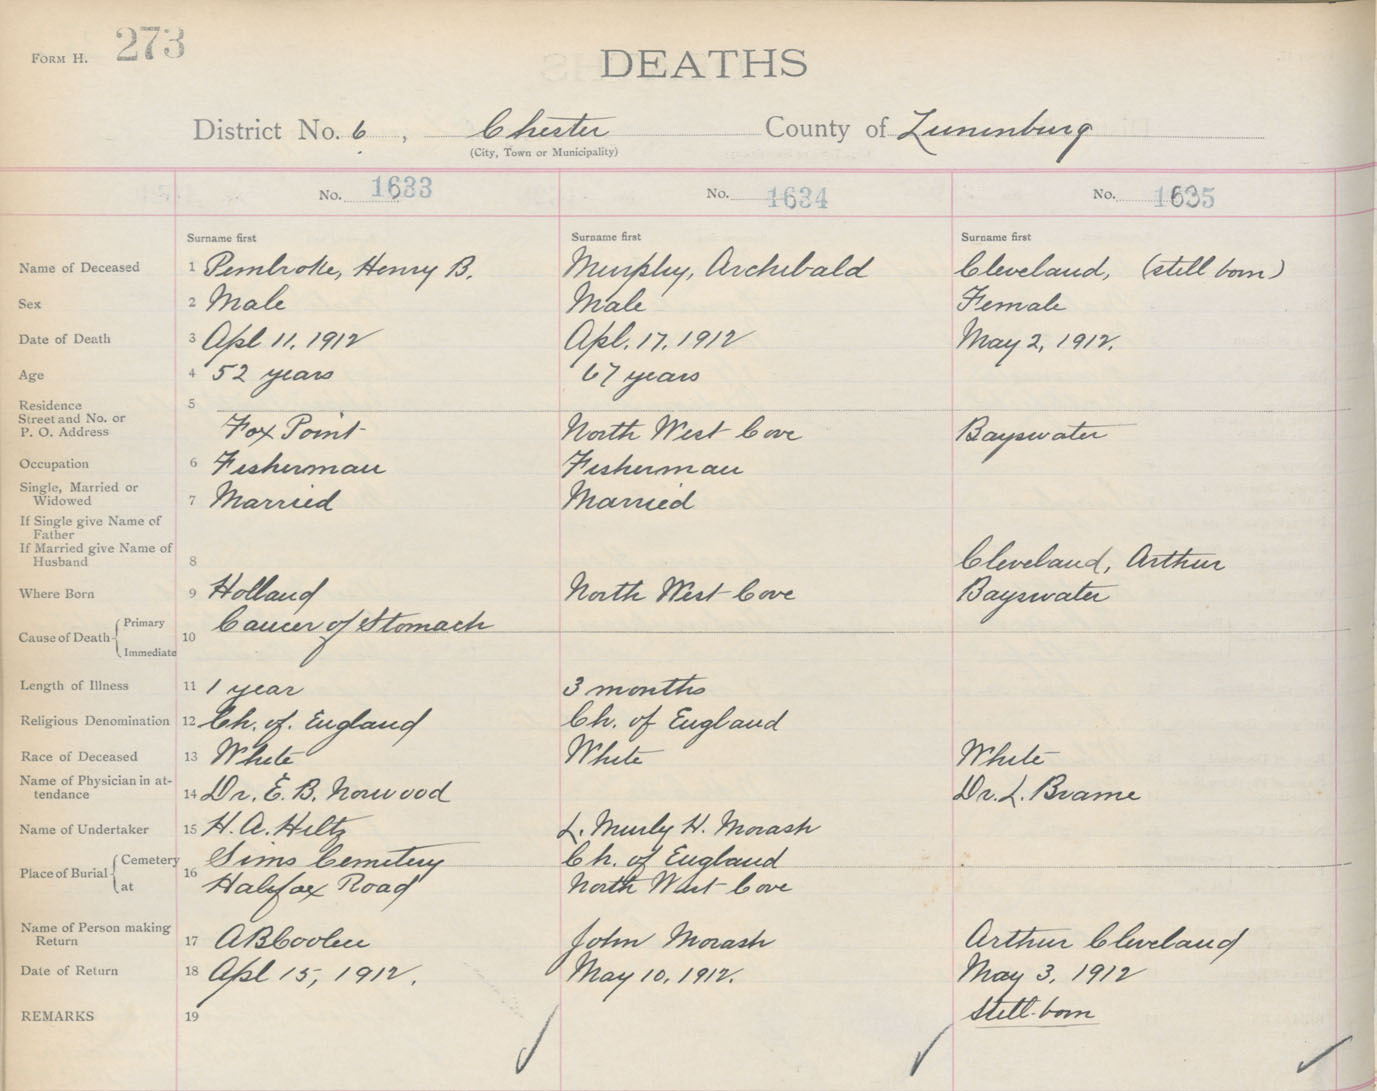 FORM H. 273
DEATHS
District No. 6, Chester County of Lunenburg
(City, Town or Municipality)
No. 1633 No. 1634 No. 1635
Surname first Surname first Surname first
Name of Deceased 1 Pembroke, Henry B. Murphy, Archibald Cleveland, (still born)
Sex 2 Male Male Female
Date of Death 3 Apl 11, 1912 Apl. 17, 1912 May 2, 1912.
Age 4 52 years 67 years
Residence 5
Street and No. or
P. O. Address Fox Point North West Cove Bayswater
Occupation 6 Fisherman Fisherman
Single, Married or
Widowed 7 Married Married
If Single give Name of
Father
If Married give Name of
Husband 8 Cleveland, Arthur
Where Born 9 Holland North West Cove Bayswater
Cause of Death Primary 10 Cancer of Stomach
Immediate
Length of Illness 11 1 year 3 months
Religious Denomination 12 Ch. of. England Ch. of England
Race of Deceased 13 White White White
Name of Physician in at-
tendance 14 Dr. E. B. Norwood Dr. L. Brame
Name of Undertaker 15 H. A. Hiltz L. Murly H. Morash
Place of Burial Cemetery 16 Sims Cemetery Ch. of England
at Halifax Road North West Cove
Name of Person making
Return 17 A B Coolen John Morash Arthur Cleveland
Date of Return 18 Apl 15, 1912. May 10, 1912. May 3, 1912
REMARKS 19 Still-born